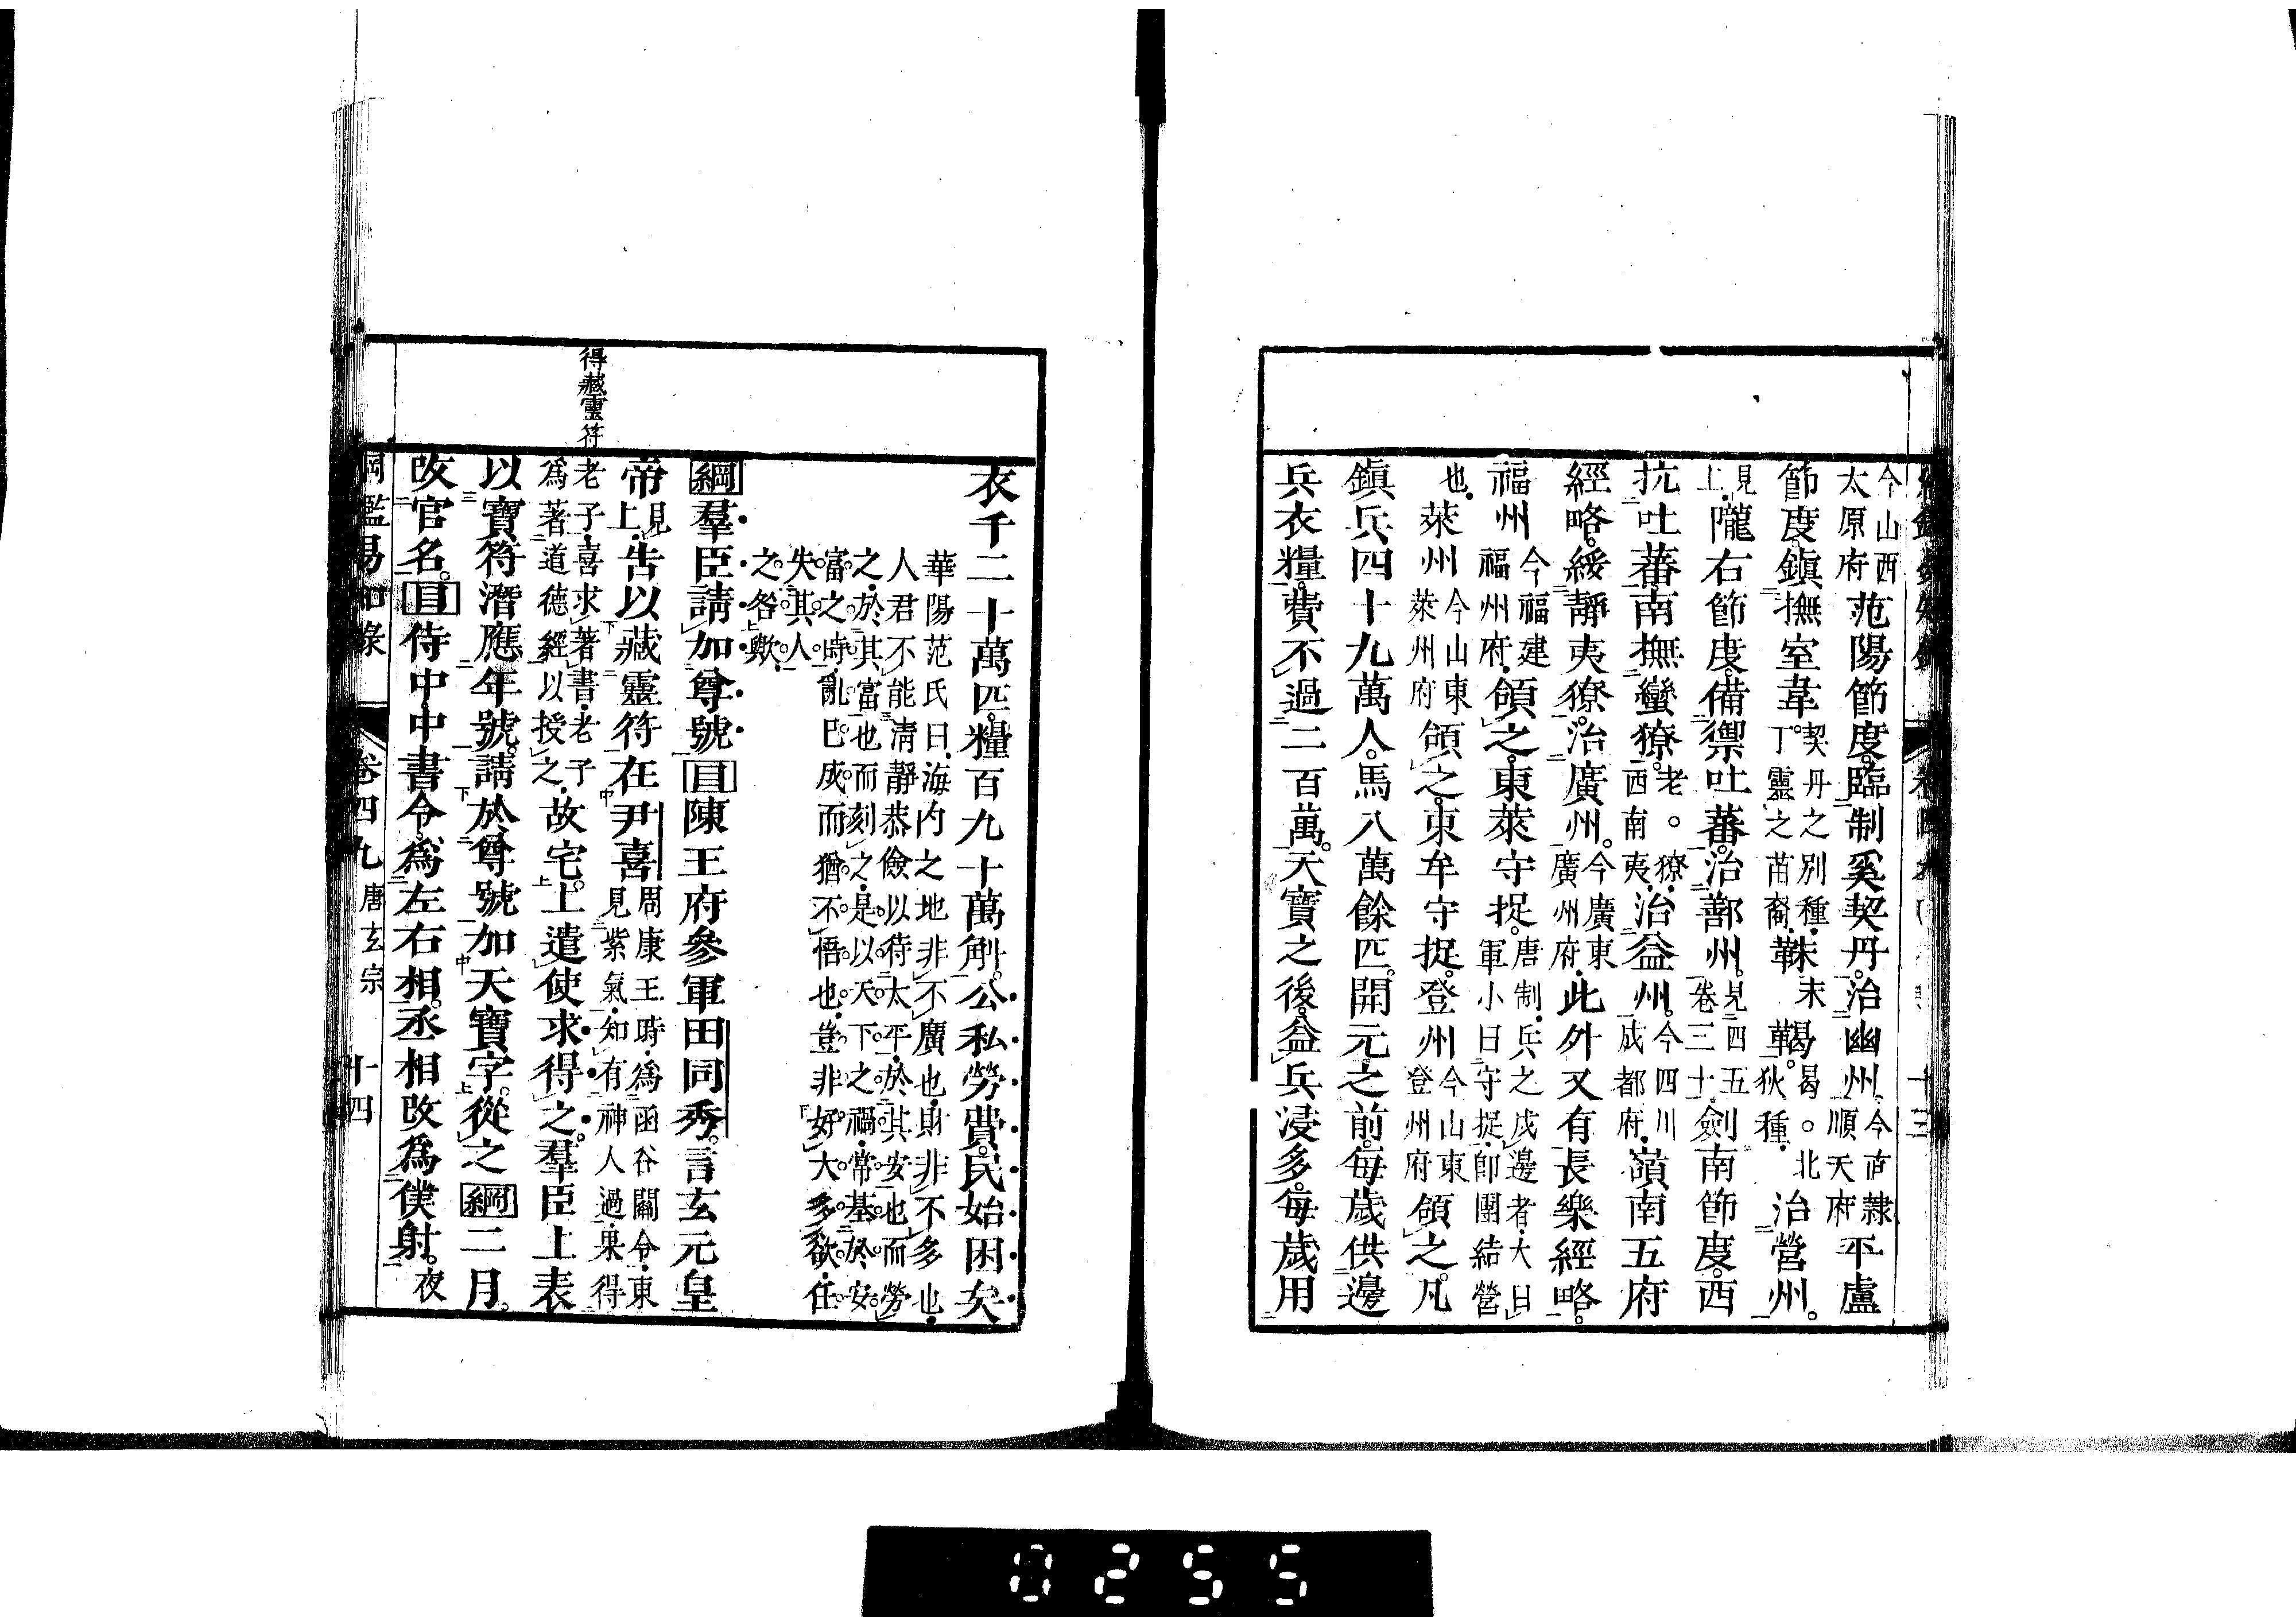 今山西
太原府范陽節度。臨制奚契丹。治幽州。今直隸順天府平盧
節度。鎮撫室韋。契丹之別種。丁靈之苗裔。靺末鞨曷。北狄種。治營州。
見上。隴右節度。備禦吐蕃。治鄯州。見四五卷三十。劍南節度。西
抗吐蕃。南撫蠻獠。老。獠。西南夷。治益州。今四川成都府。嶺南五府
經略。綏靜夷獠。治廣州。今廣東廣州府。此外又有長樂經略。
福州今福建福州府。領之。東萊守捉。唐制。兵之戍邊者。大曰軍小曰守捉。即團結營
也。萊州今山東萊州府領之。東牟守捉。登州今山東登州府領之。凡
鎮兵四十九萬人。馬八萬餘匹。開元之前。每歲供邊
兵衣糧。費不過二百萬。天寶之後。益兵浸多。每歲用
衣千二十萬匹。糧百九十萬斛。公私勞費。民始困矣
華陽范氏曰。海内之地非不廣也。財非不多也。
人君不能清靜恭儉以待太平。於其安也而勞
之。於其富也而刻之。是以天下之禍。常基於安。
富之時。亂已成而猶不悟也。豈非好大多欲。任
失其人
之咎歟。
綱羣臣請加尊號目陳王府參軍田同秀。言玄元皇
帝見上。告以藏靈符在尹喜周康王時。爲函谷關令。東見紫氣。知有神人過。果得
得藏靈符
老子。喜求著書。老子爲著道德經以授之。故宅。上遣使求得之。羣臣上表
以寶符潛應年號。請於尊號加天寶字。從之綱二月。
改官名。目侍中。中書令。爲左右相。丞相改爲僕射。夜
綱鑑易知錄 卷四九 唐玄宗 十四
0255